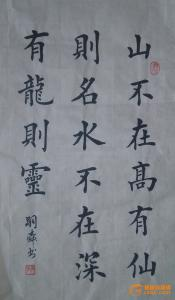 山不在高有仙
則名水不在深
有龍則靈